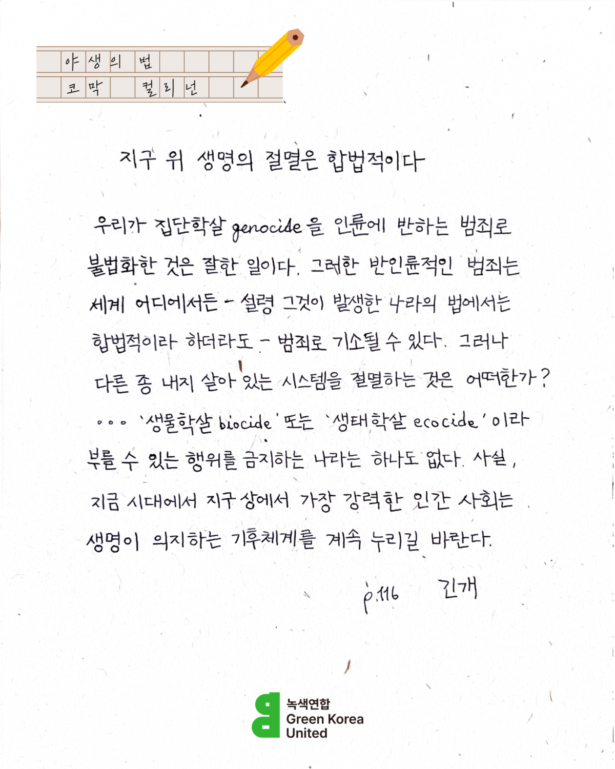 야생의 법
코막 컬리넌
지구 위 생명의 절멸은 합법적이다
우리가 집단학살 genocide을 인륜에 반하는 범죄로
불법화한 것은 잘한 일이다. 그러한 반인륜적인 범죄는
세계 어디에서든 - 설령 그것이 발생한 나라의 법에서는
합법적이라 하더라도 - 범죄로 기소될 수 있다. 그러나
다른 종 내지 살아 있는 시스템을 절멸하는 것은 어떠한가?
... '생물학살 biocide' 또는 '생태학살 ecocide'이라
부를 수 있는 행위를 금지하는 나라는 하나도 없다. 사실,
지금 시대에서 지구상에서 가장 강력한 인간 사회는
생명이 의지하는 기후체계를 계속 누리길 바란다.
p.116 긴개
녹색연합
Green Korea
United